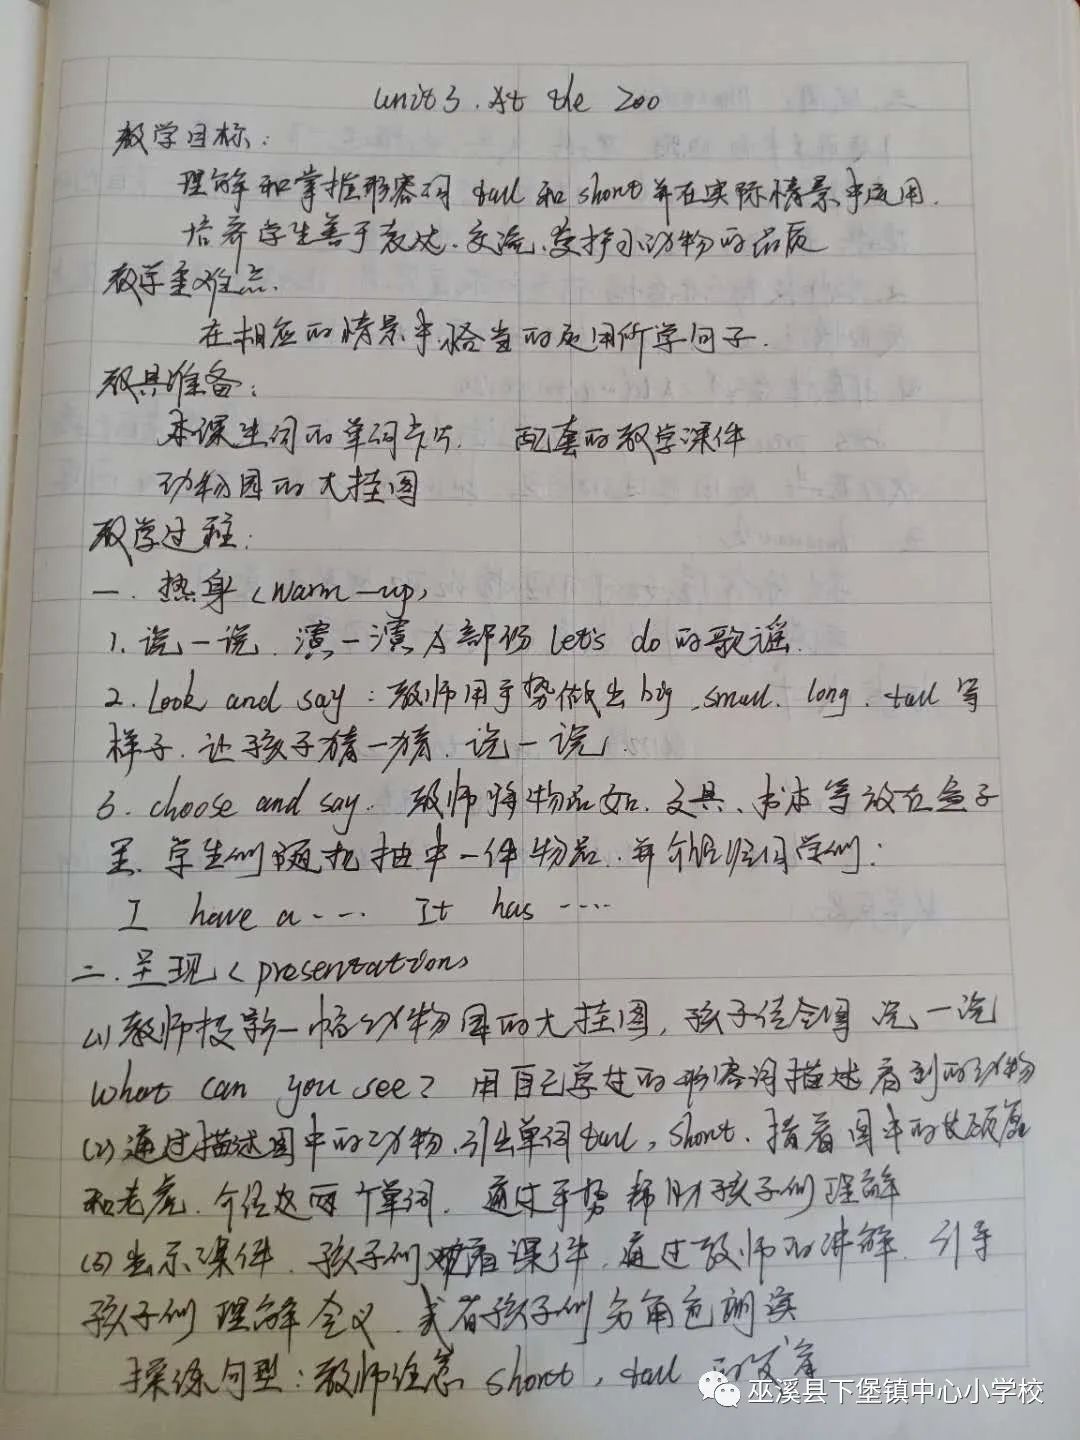 Unit 3. At the Zoo
教学目标：
理解和掌握形容词 tall 和 short 并在实际情景中运用.
培养学生善于表达、交流、爱护小动物的品质
教学重难点.
在相应的情景中,恰当的运用所学句子.
教具准备：
本课生词的单词卡片. 配套的教学课件
动物园的大挂图
教学过程：
一. 热身 (warm-up)
1. 说一说. 演一演 A部份 let's do 的歌谣.
2. Look and say：教师用手势做出 big . small. long . tall 等
样子. 让孩子猜一猜. 说一说.
3. choose and say. 教师将物品如. 文具、书本等放在盒子
里. 学生们随机抽中一件物品. 并介绍给同学们：
I have a .... It has ....
二. 呈现 (presentation)
(1) 教师投影一幅动物园的大挂图, 孩子 说一说
what can you see? 用自己学过的形容词描述看到的动物
(2) 通过描述图中的动物. 引出单词 tall, short. 指着图中的长颈鹿
和老虎. 介绍这两个单词. 通过手势帮助孩子们理解
(3) 出示课件. 孩子们观看课件. 通过教师的讲解. 引导
孩子们理解含义. 或者孩子们分角色朗读
操练句型：教师注意 short, tall 的发音
巫溪县下堡镇中心小学校